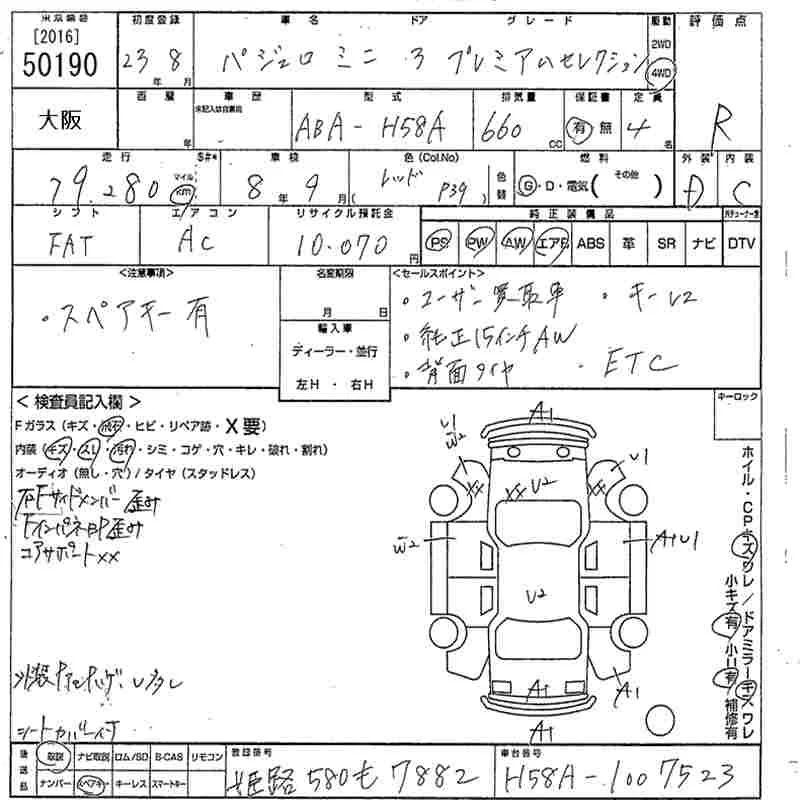 東京開催 初度登録 車名 ドア グレード 駆動 評価点
[2016] 50190 23年 8月 パジェロ ミニ 3 プレミアムセレクション 2WD 4WD R
大阪 西暦 年 車歴 未記入は自家用 型式 ABA-H58A 排気量 660 CC 保証書 有 無 定員 4 名
走行 S#* 車検 色(Col.No) 燃料 外装 内装
79.280 マイル km 8年 9月 レッド ( P39 ) 色替 G・D・電気( その他 ) D C
シフト エアコン リサイクル預託金 純正装備品
FAT AC 10.070 円 PS PW AW エアB ABS 革 SR ナビ DTV
<注意事項> 名変期限 <セールスポイント>
・スペアキー有 月 日 ・ユーザー買取車 ・キーレス
輸入車 ・純正15インチAW
ディーラー・並行 ・背面タイヤ ・ETC
左H ・ 右H
キーロック
< 検査員記入欄 >
Fガラス (キズ・飛石・ヒビ・リペア跡・X要)
内装 (キズ・スレ・汚れ・シミ・コゲ・穴・キレ・破れ・割れ)
オーディオ (無し・穴) / タイヤ (スタッドレス)
右Fサイドメンバー歪み
FインパネBP歪み
コアサポートXX
シートカバー付
A1
U1
W2
U1
XX XX U2 XX
W2 A1U1
U2
A1 A1
A1
ホイル・CPキズワレ/ドアミラーキズワレ
小キズ有 小U有 補修有
後送品 取説 ナビ取説 ロム/SD B-CAS リモコン 登録番号 車台番号
ナンバー スペアキー キーレス スマートキー 姫路 580 も 7882 H58A-1007523